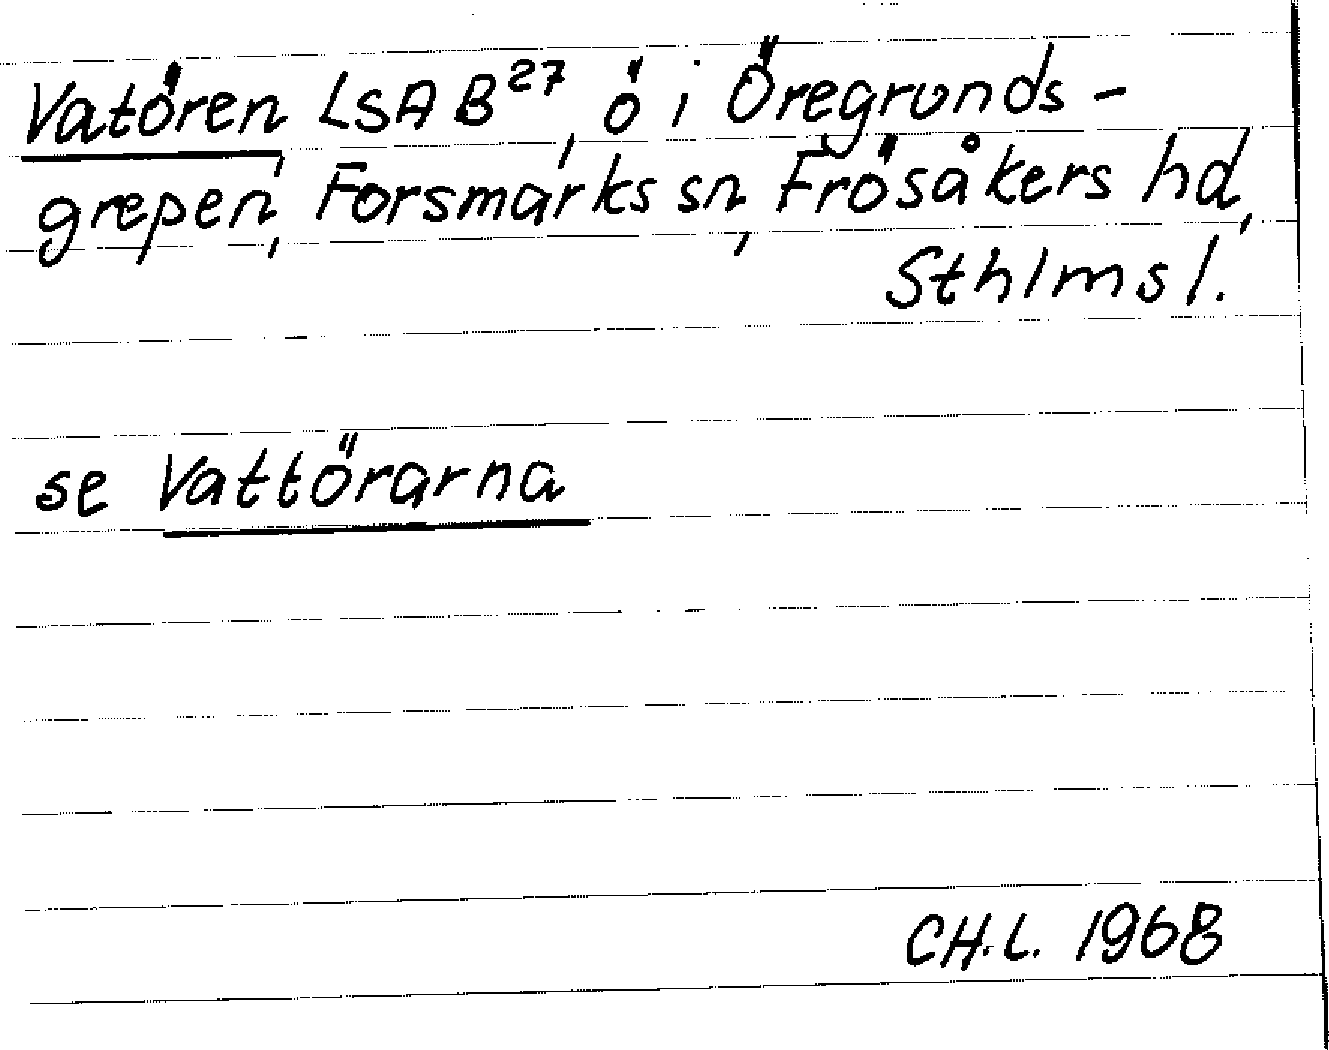 Vatören, LSA B27, ö i Öregrunds-
grepen, Forsmarks sn, Frösåkers hd,
Sthlms l.
se Vattörarna
CH.L. 1968